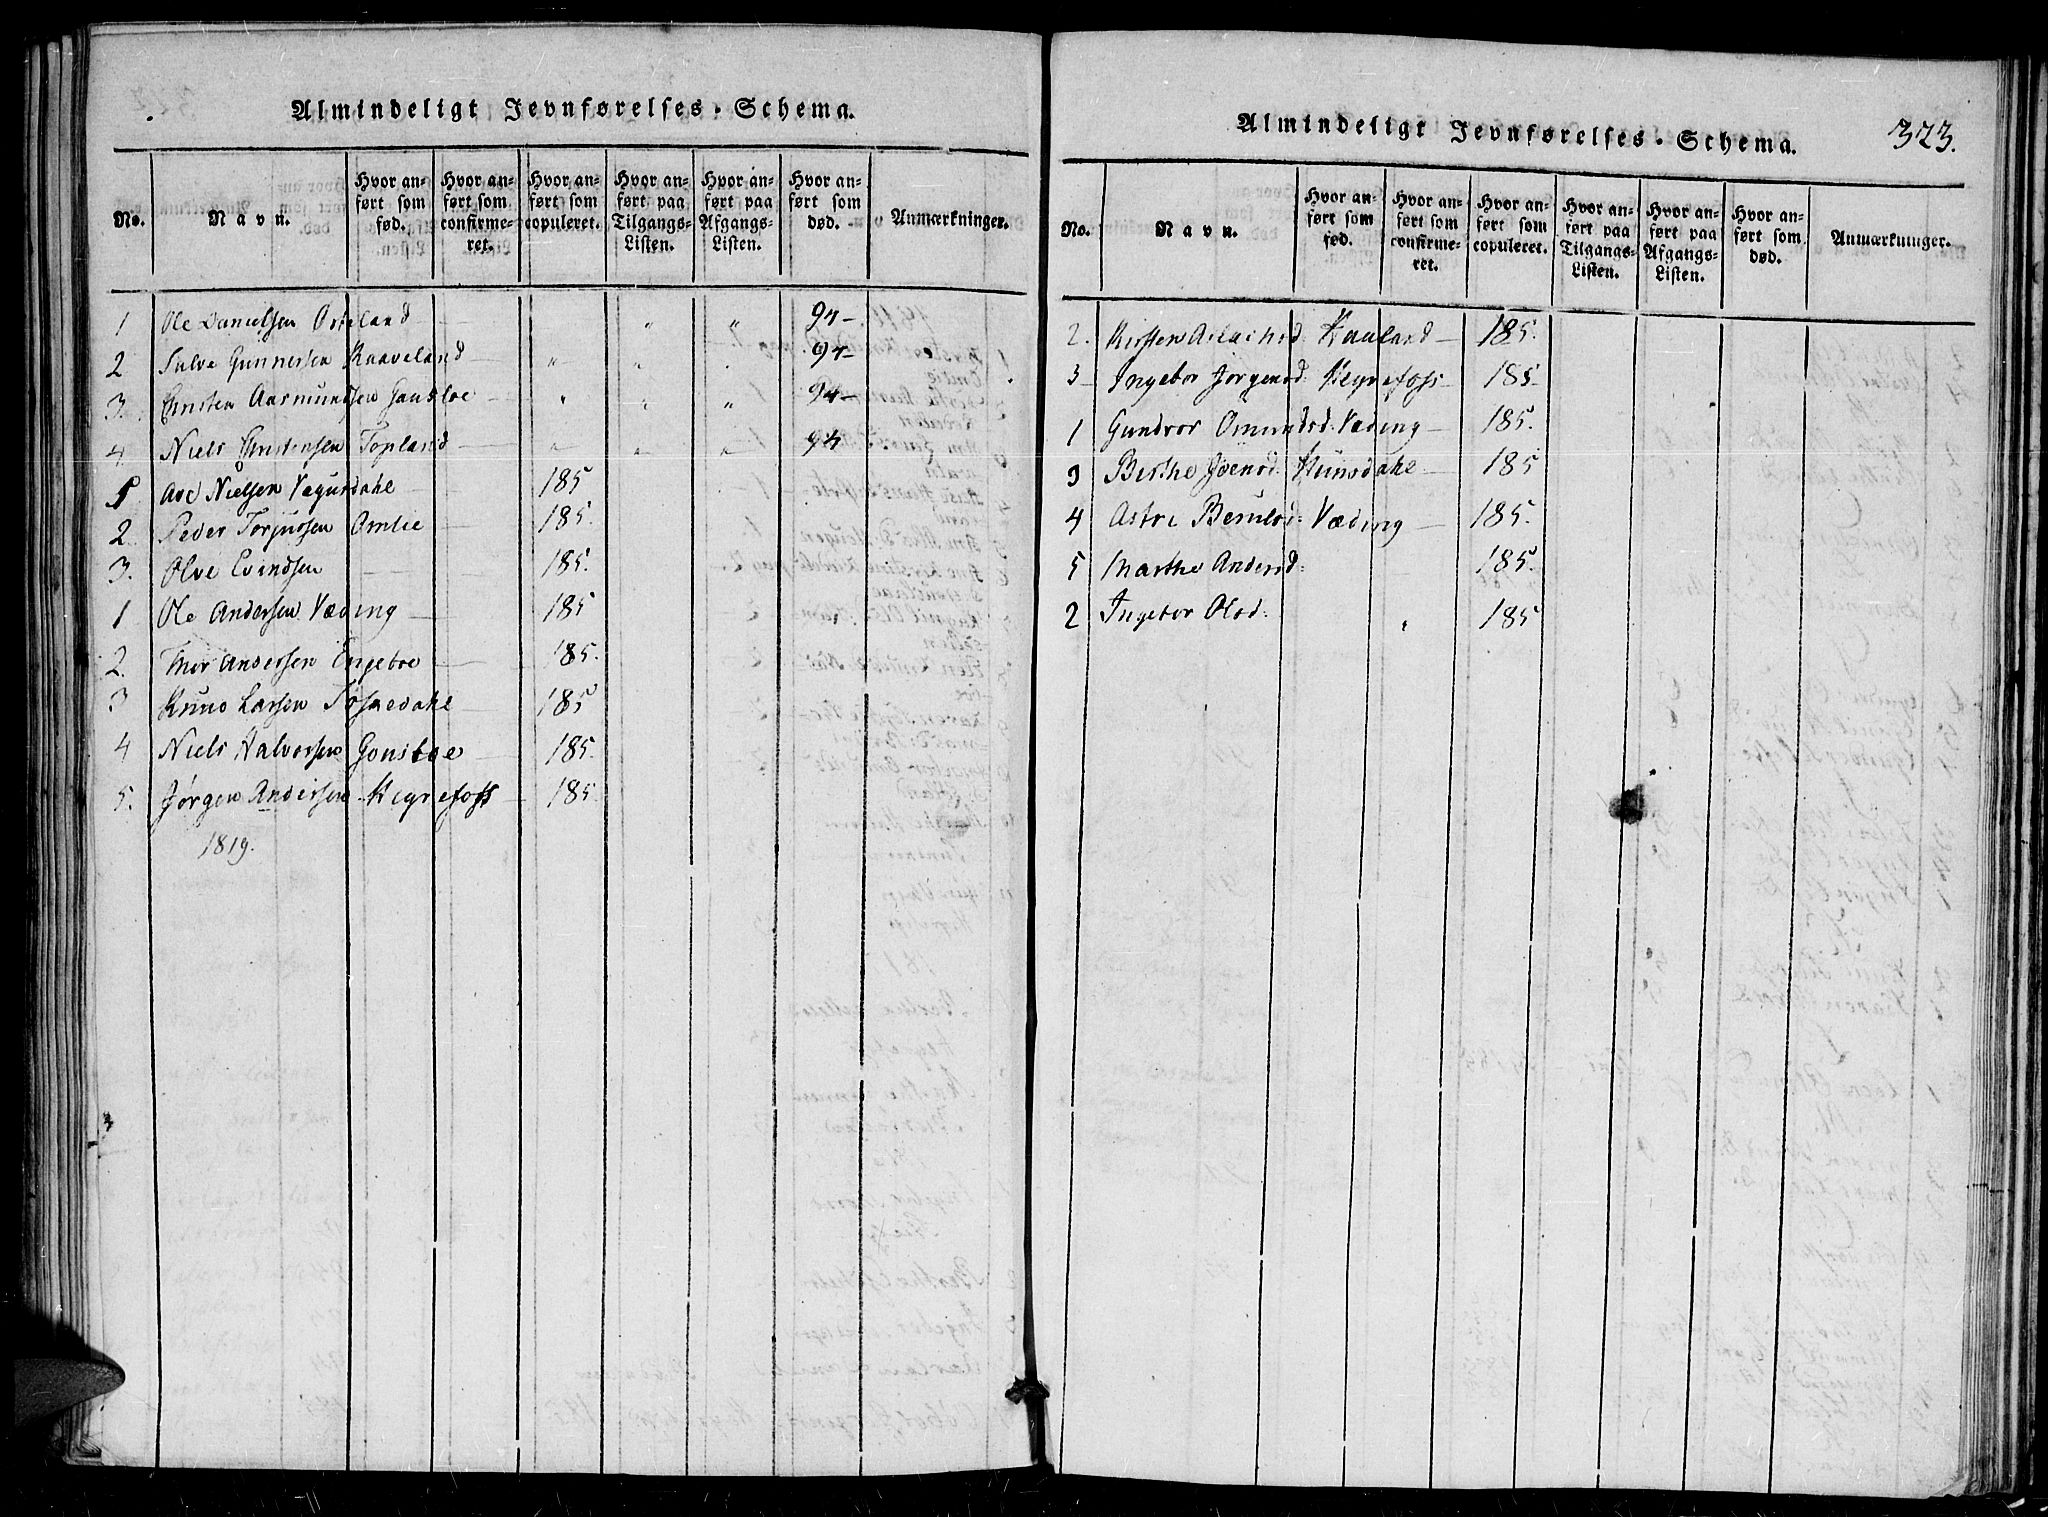 Almindeligt Jevnførelses-Schema.
No. Navn. Hvor anført som fød. Hvor anført som confirmeret. Hvor anført som copuleret. Hvor anført paa Tilgangs-Listen. Hvor anført paa Afgangs-Listen. Hvor anført som død. Anmærkninger.
1 Ole Danielsen Oseland " " 94-
2 Salve Gunnersen Raaveland " " 94-
3. Christen Aasmundsen " " " 94-
4. Niels Christensen Topland " " " 94
1 Ave Nielsen Vegusdahl 185
2 Peder Torjussen Omlie 185.
3. Olve Evindsen 185.
1 Ole Andersen Væding 185
2. Thor Andersen Engeboe 185.
3 Knud Larsen 185
4 Niels Halvorsen Gonsloe 185.
5. Jørgen Andersen Heyrefoss 185.
1819.
Almindeligt Jevnførelses-Schema. 323.
No. Navn. Hvor anført som fød. Hvor anført som confirmeret. Hvor anført som copuleret. Hvor anført paa Tilgangs-Listen. Hvor anført paa Afgangs-Listen. Hvor anført som død. Anmærkninger.
2. Kirsten Aslachsd: Haaland 185.
3 Ingebor Jørgensd: Heyrefoss 185
1 Gundvor Omundsd: Væding 185.
3 Berthe Joensd: Hunsdahl 185
4 Astri Berulsd: Væding 185.
5 Marthe Andersd: 185.
2 Ingebor Olsd: " 185